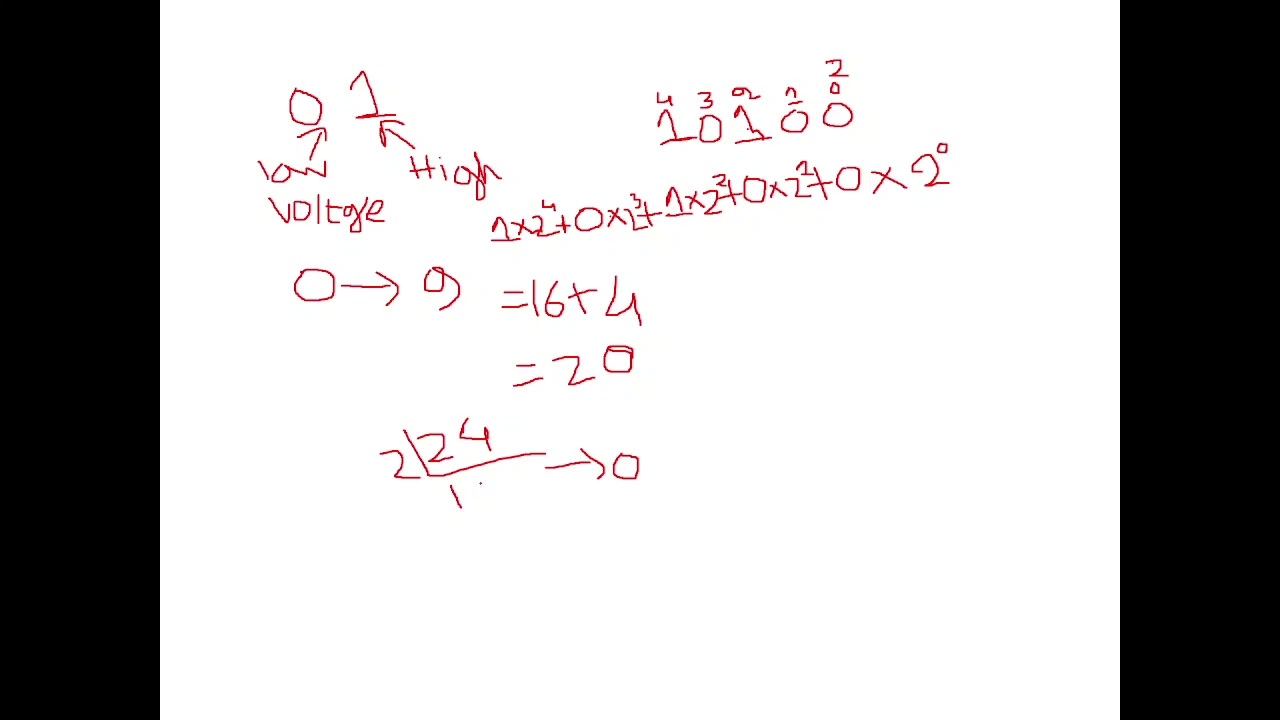 0 1
low High
voltge
0 → 9
4 3 2 1 2⁰
1 0 1 0 0
1×2⁴+0×2³+1×2²+0×2¹+0×2⁰
=16+4
=20
2|24 → 0
1